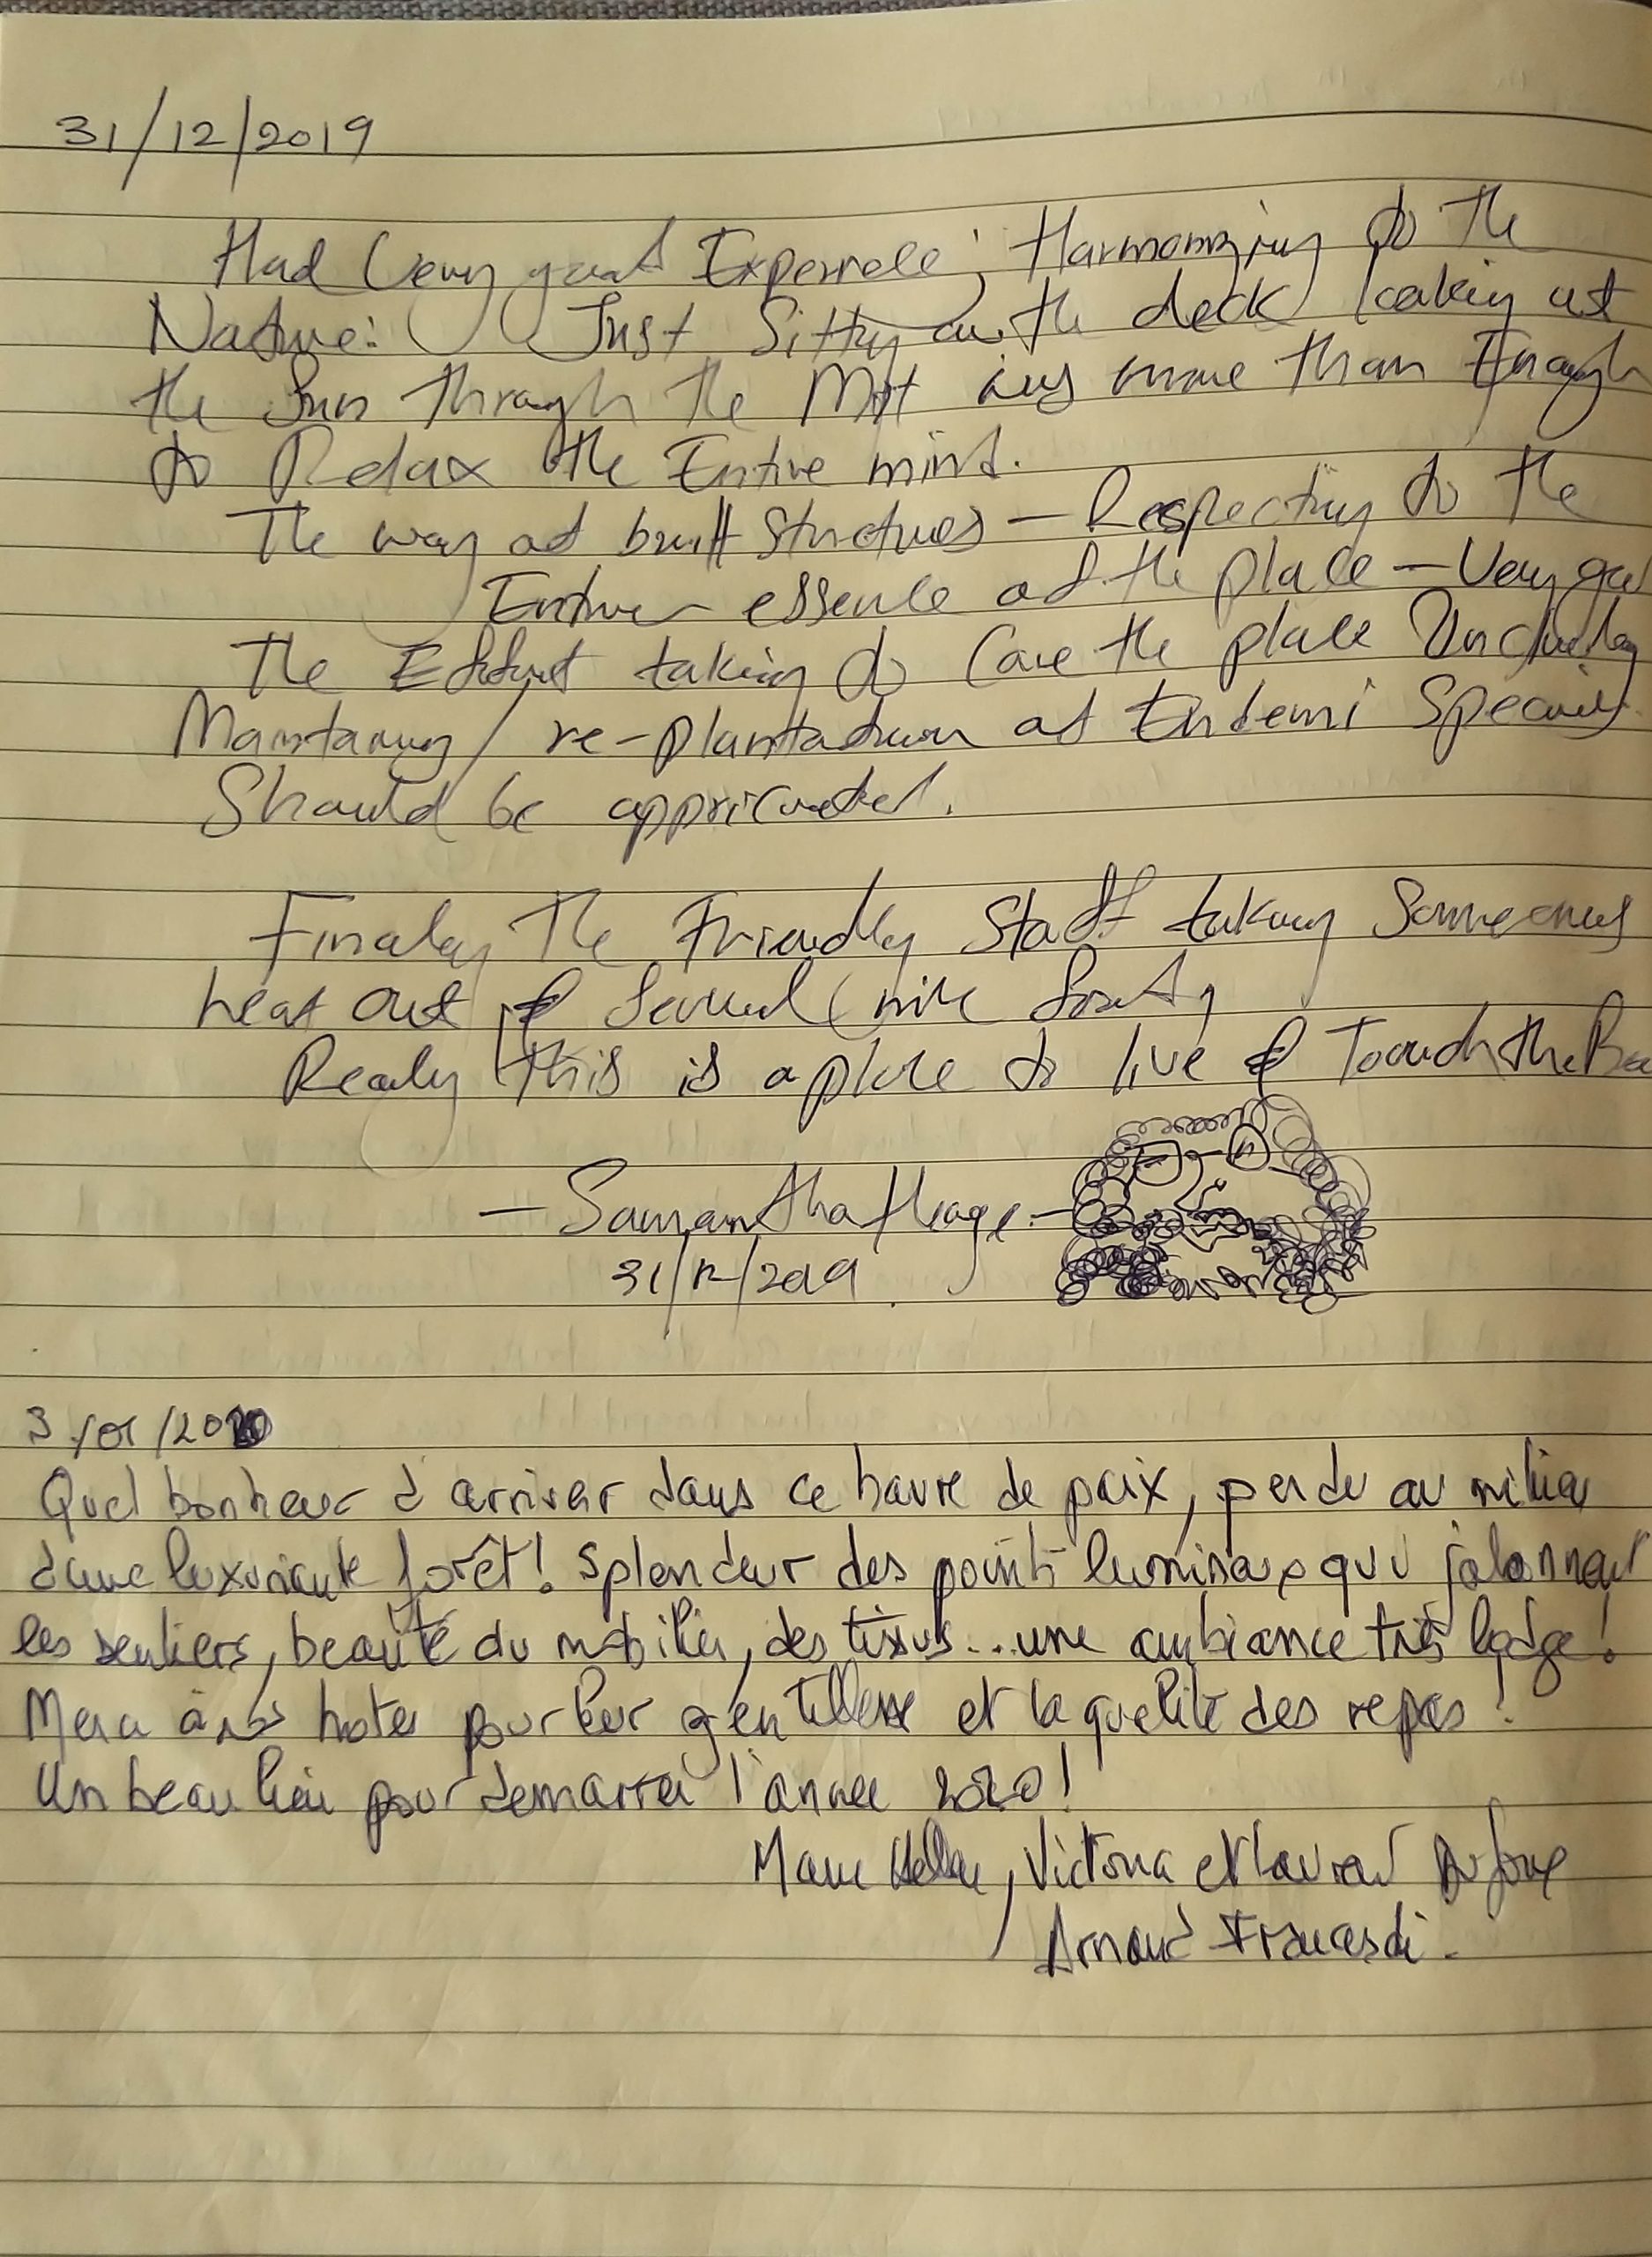 31/12/2019
Had Very great Experience; Harmonizing to the
Nature: Just Sitting on the deck looking at
the Sun through the Mist was more than Enough
to Relax the Entire mind.
The way of built Structures - Respecting to the
Entire essence of the place - Very
The Effort taking to Care the place Including
Maintaning / re-plantation of Endemi Species
Should be appriciated.
Finaley The Friendly Staff taking Someones
out &
Realy this is a place to live & Toouch the
- Samantha
31/12/2019
3/01/2020
Quel bonheur d'arriver dans ce havre de paix, perdu au milieu
d'une luxuriante forêt! Splendeur des points lumineux qui jalonnent
les sentiers, beauté du mobilier, des tissus... une ambiance très lodge!
Merci à nos hotes pour leur gentillesse et la qualité des repas!
Un beau lieu pour demarrer l'année 2020!
Victoria et
Arnaud